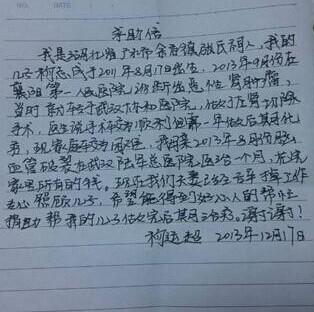 求助信
我是湖北省广水市余店镇殷氏祠人,我的
儿子柯志成于2011年8月17日出生,2013年9月份在
襄阳第一人民医院诊断出恶性肾肿瘤,
当时就转于武汉协和医院,做了左肾切除
手术,医生说手术较顺利但第一年做后期化
疗,现家庭较为困难,我母亲2013年8月份脑
血管破裂在武汉陆军总医院医治一个月,花费
家里所有的钱。现在我们夫妻已经丢掉工作
专心照顾儿子,希望能得到好心人的帮忙
捐助帮我的儿子做完后期治疗。谢谢!
柯 超 2013年12月17日